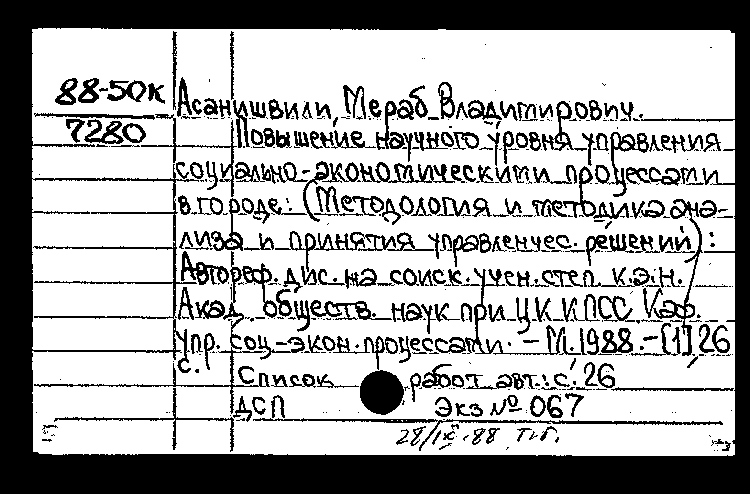 88-50к
7280
Асанишвили, Мераб Владимирович.
Повышение научного уровня управления
социально-экономическими процессами
в городе: (Методология и методика ана-
лиза и принятия управленчес. решений):
Автореф. дис. на соиск. учен. степ. к.э.н.
Акад. обществ. наук при ЦК КПСС Каф.
Упр. соц-экон. процессами. - М. 1988. - [1], 26
с.
Список работ авт.: с. 26
ДСП Экз № 067
28/IX-88